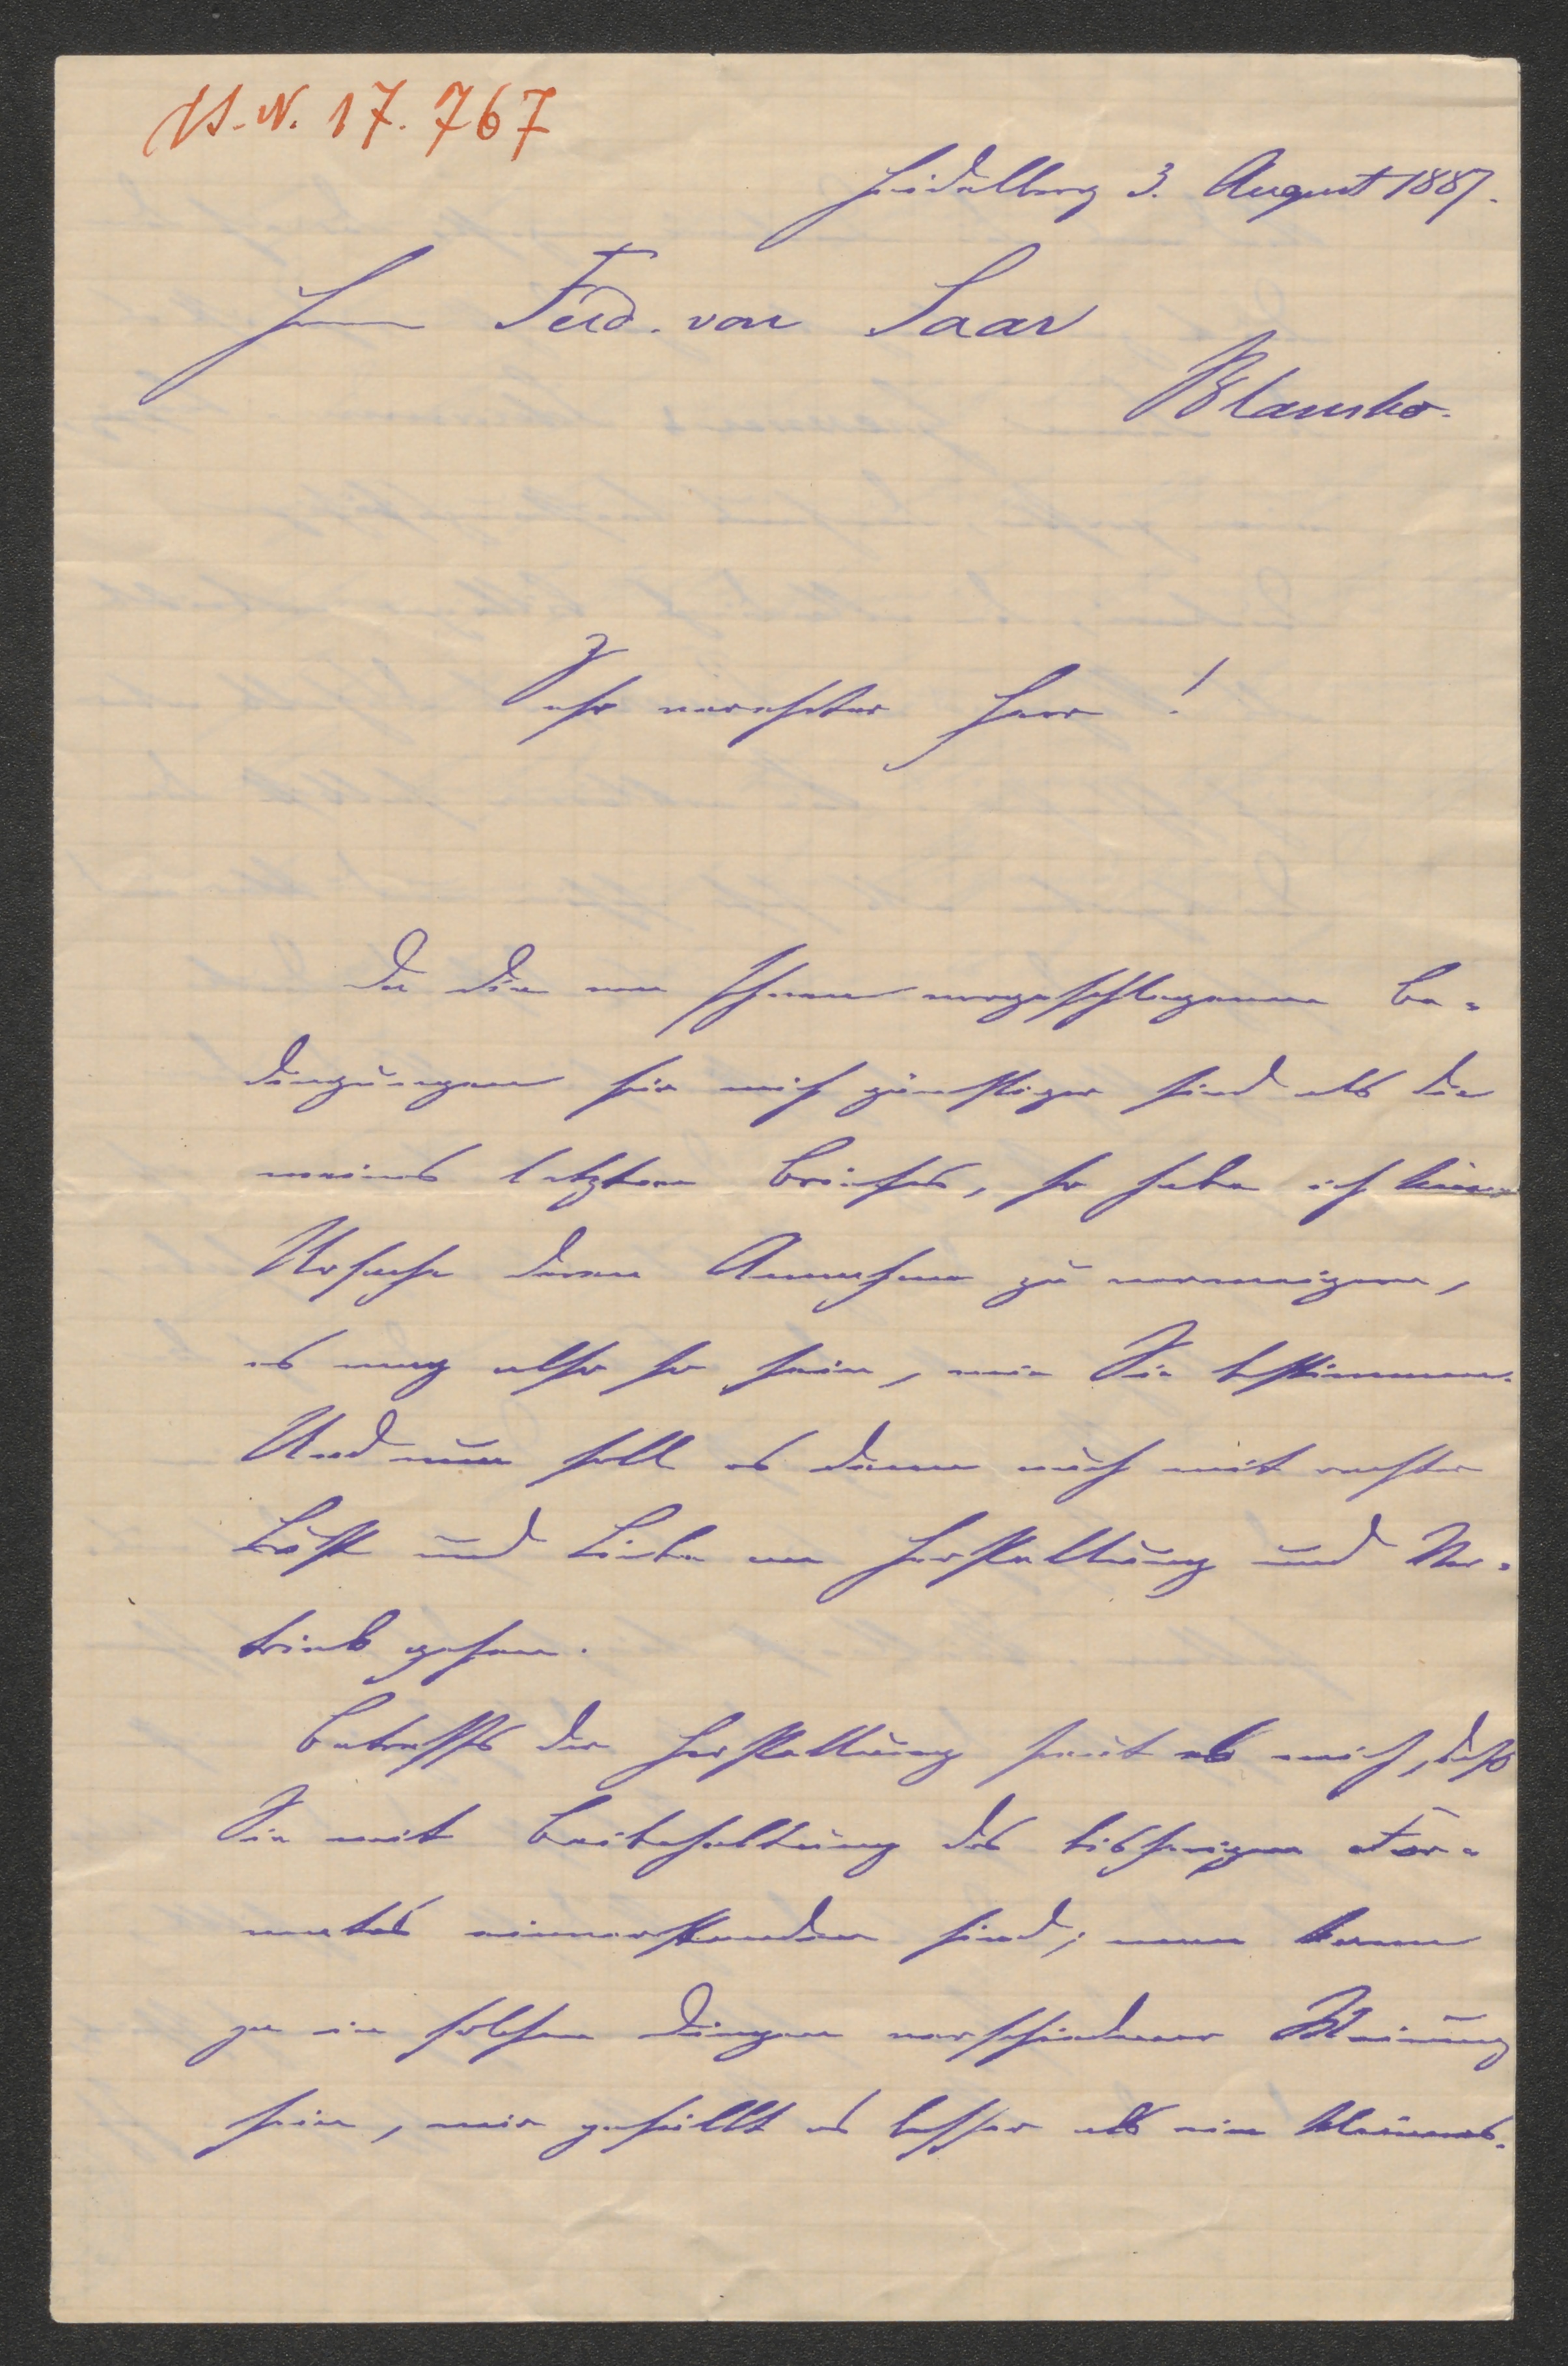 H.N. 17.767
Heidelberg 3. August 1887.
Herrn Ferd. von Saar
Blansko.
Sehr verehrter Herr!
Da die von Ihnen vorgeschlagenen Be-
dingungen für mich günstiger sind als die
meines letzten Briefes, so habe ich keine
Ursache deren Annahme zu verweigern,
es mag also so sein, wie Sie bestimmen.
Und nun soll es denn auch mit rechter
Lust und Liebe an Herstellung und Ver-
trieb gehen.
Betreffs der Herstellung freut es mich, daß
Sie mit Beibehaltung des bisherigen For-
mates einverstanden sind; man kann
ja in solchen Dingen verschiedener Meinung
sein, mir gefällt es besser als ein kleineres.